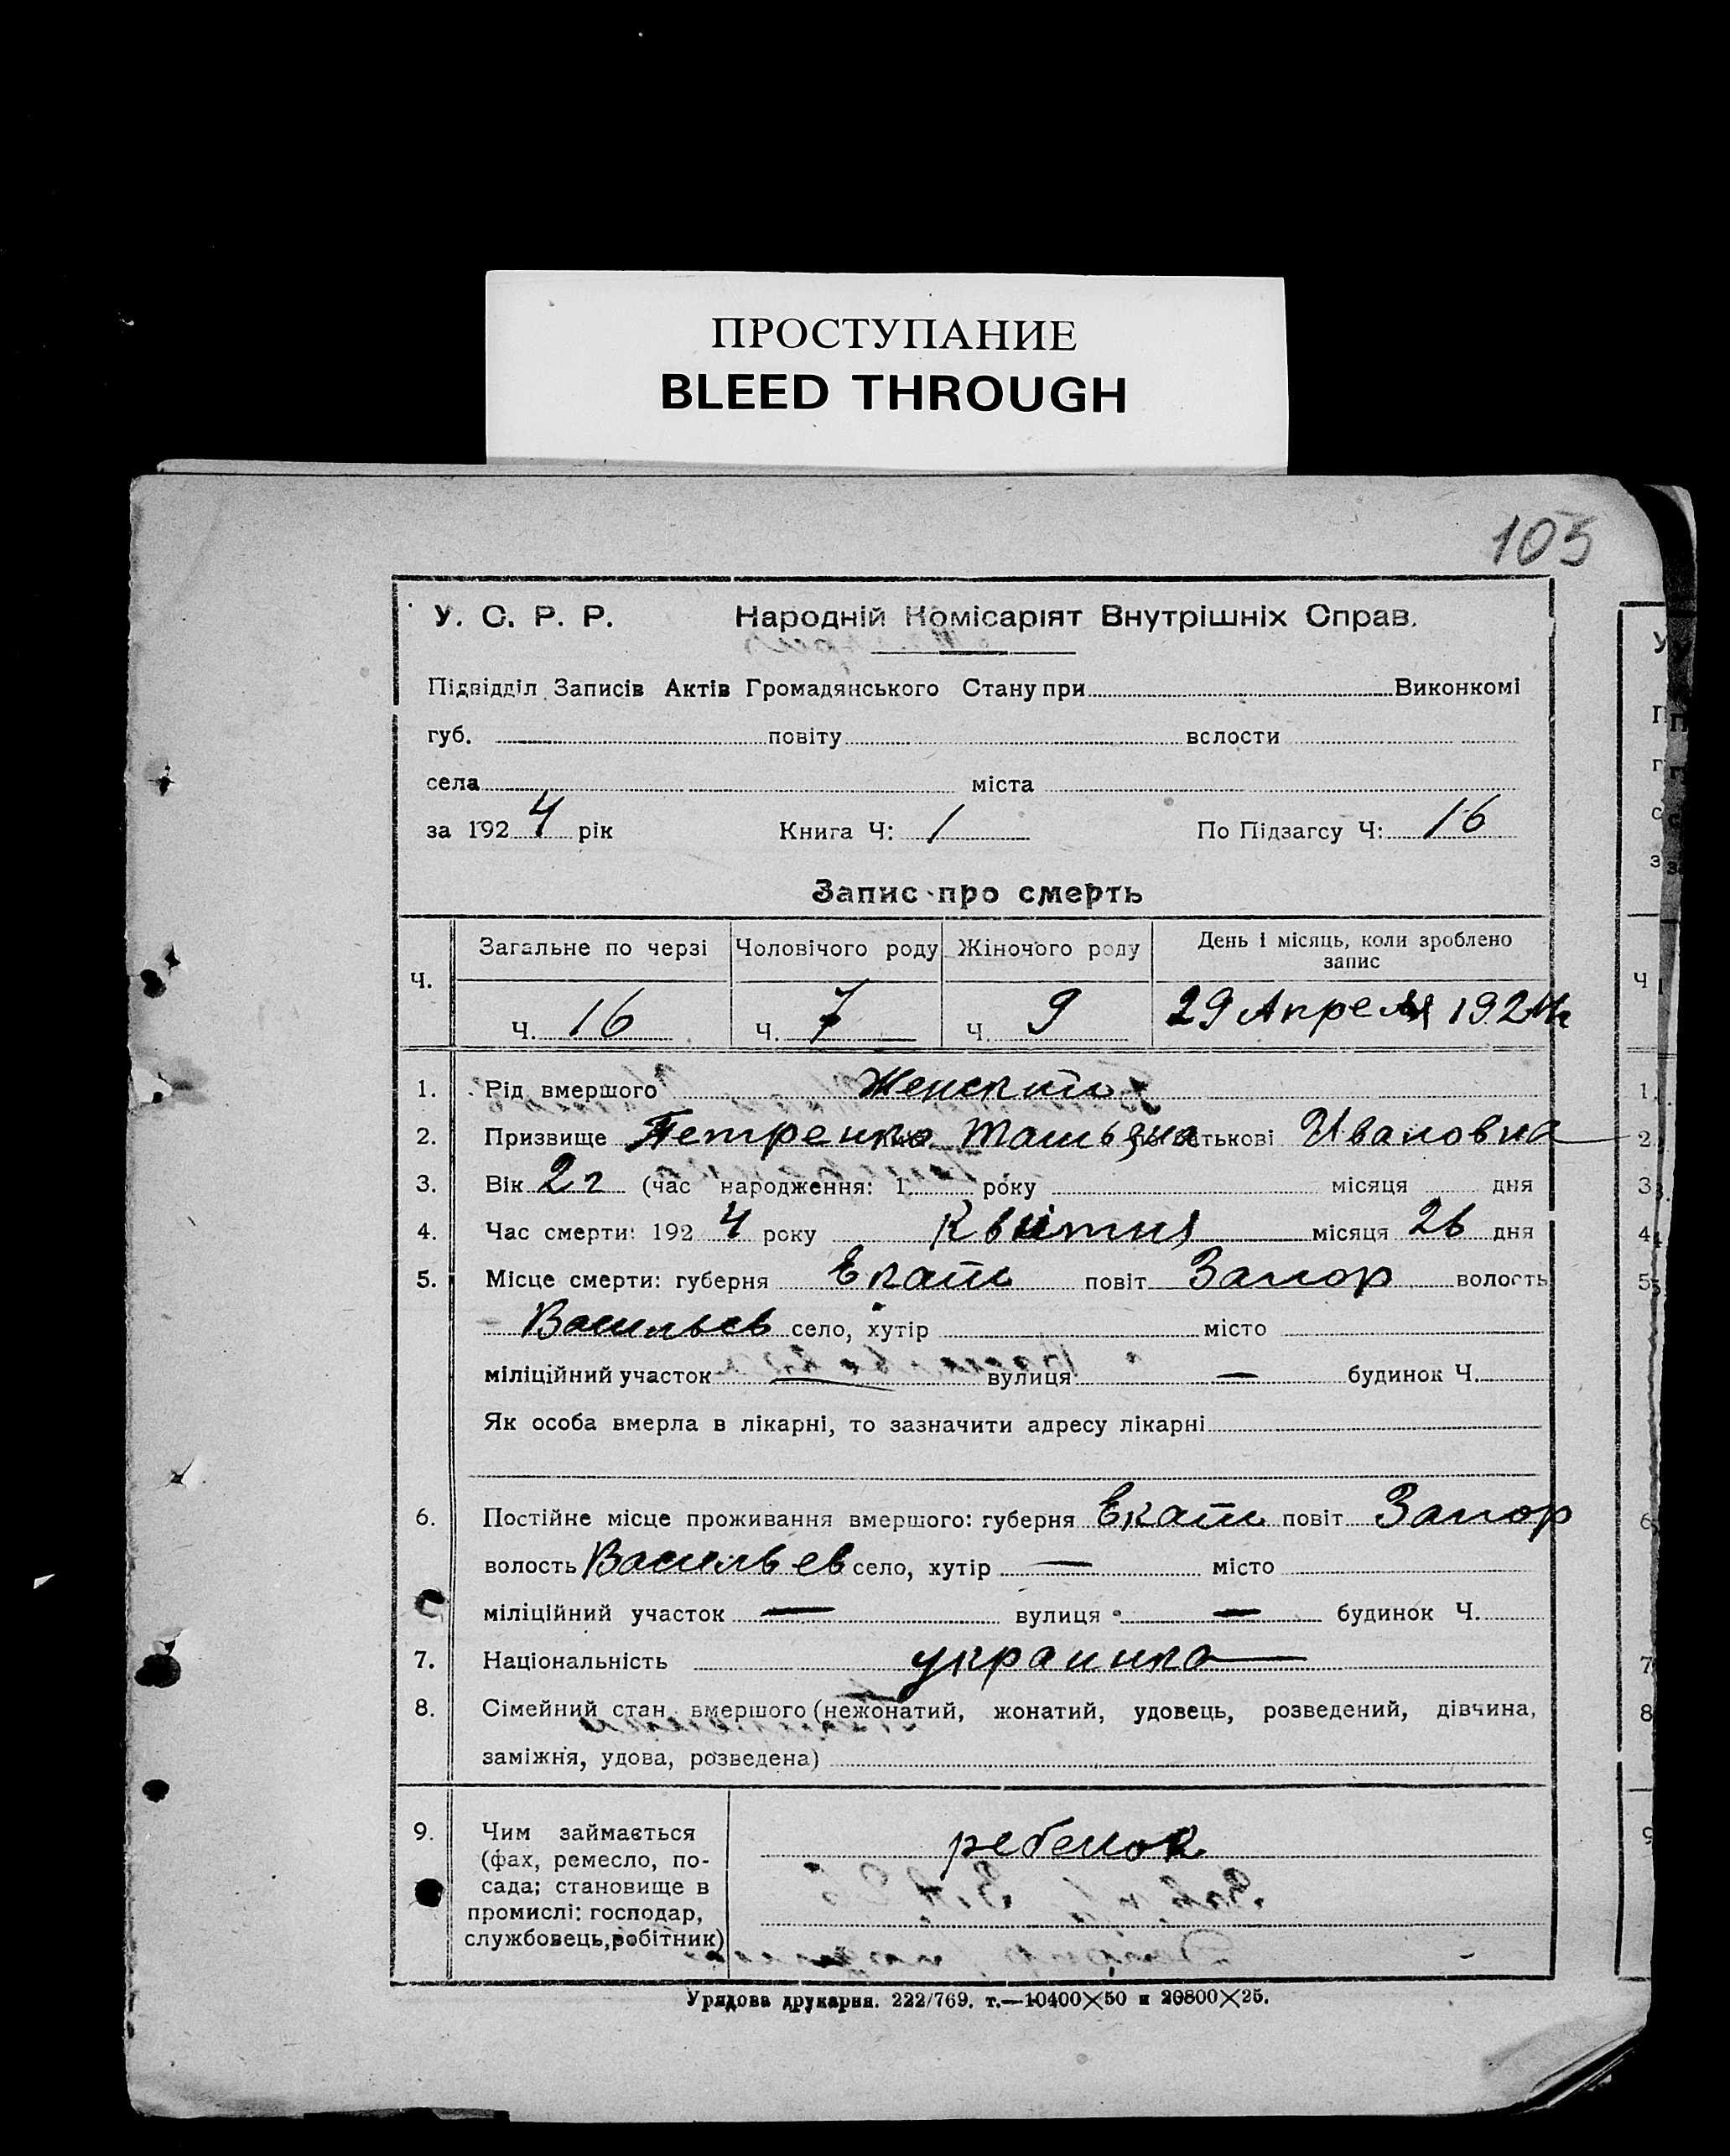 ПРОСТУПАНИЕ
BLEED THROUGH
105
У. С. Р. Р. Народній Комісаріят Внутрішніх Справ.
Підвідділ Записів Актів Громадянського Стану при Виконкомі
губ. повіту вслости
села міста
за 1924 рік Книга Ч: 1 По Підзагсу Ч: 16
Запис про смерть
Ч. Загальне по черзі Чоловічого роду Жіночого роду День і місяць, коли зроблено
запис
Ч. 16 Ч. 7 Ч. 9 29 Апреля 1924 г
1. Рід вмершого Женский
2. Призвище Петренко Татьяна по батькові Ивановна
3. Вік 2 г (час народження: 1 року місяця дня
4. Час смерти: 1924 року Квитня місяця 26 дня
5. Місце смерти: губерня Екат повіт Запор волость
Васильев село, хутір місто
міліційний участок — вулиця — будинок Ч.
Як особа вмерла в лікарні, то зазначити адресу лікарні
6. Постійне місце проживання вмершого: губерня Екат повіт Запор
волость Васильев село, хутір — місто
міліційний участок — вулиця — будинок Ч.
7. Національність украинка
8. Сімейний стан вмершого (нежонатий, жонатий, удовець, розведений, дівчина,
заміжня, удова, розведена)
9. Чим займається
(фах, ремесло, по-
сада; становище в
промислі: господар,
службовець, робітник)
ребенок
Урядова друкарня. 222/769. т.—10400×50 и 20800×25.